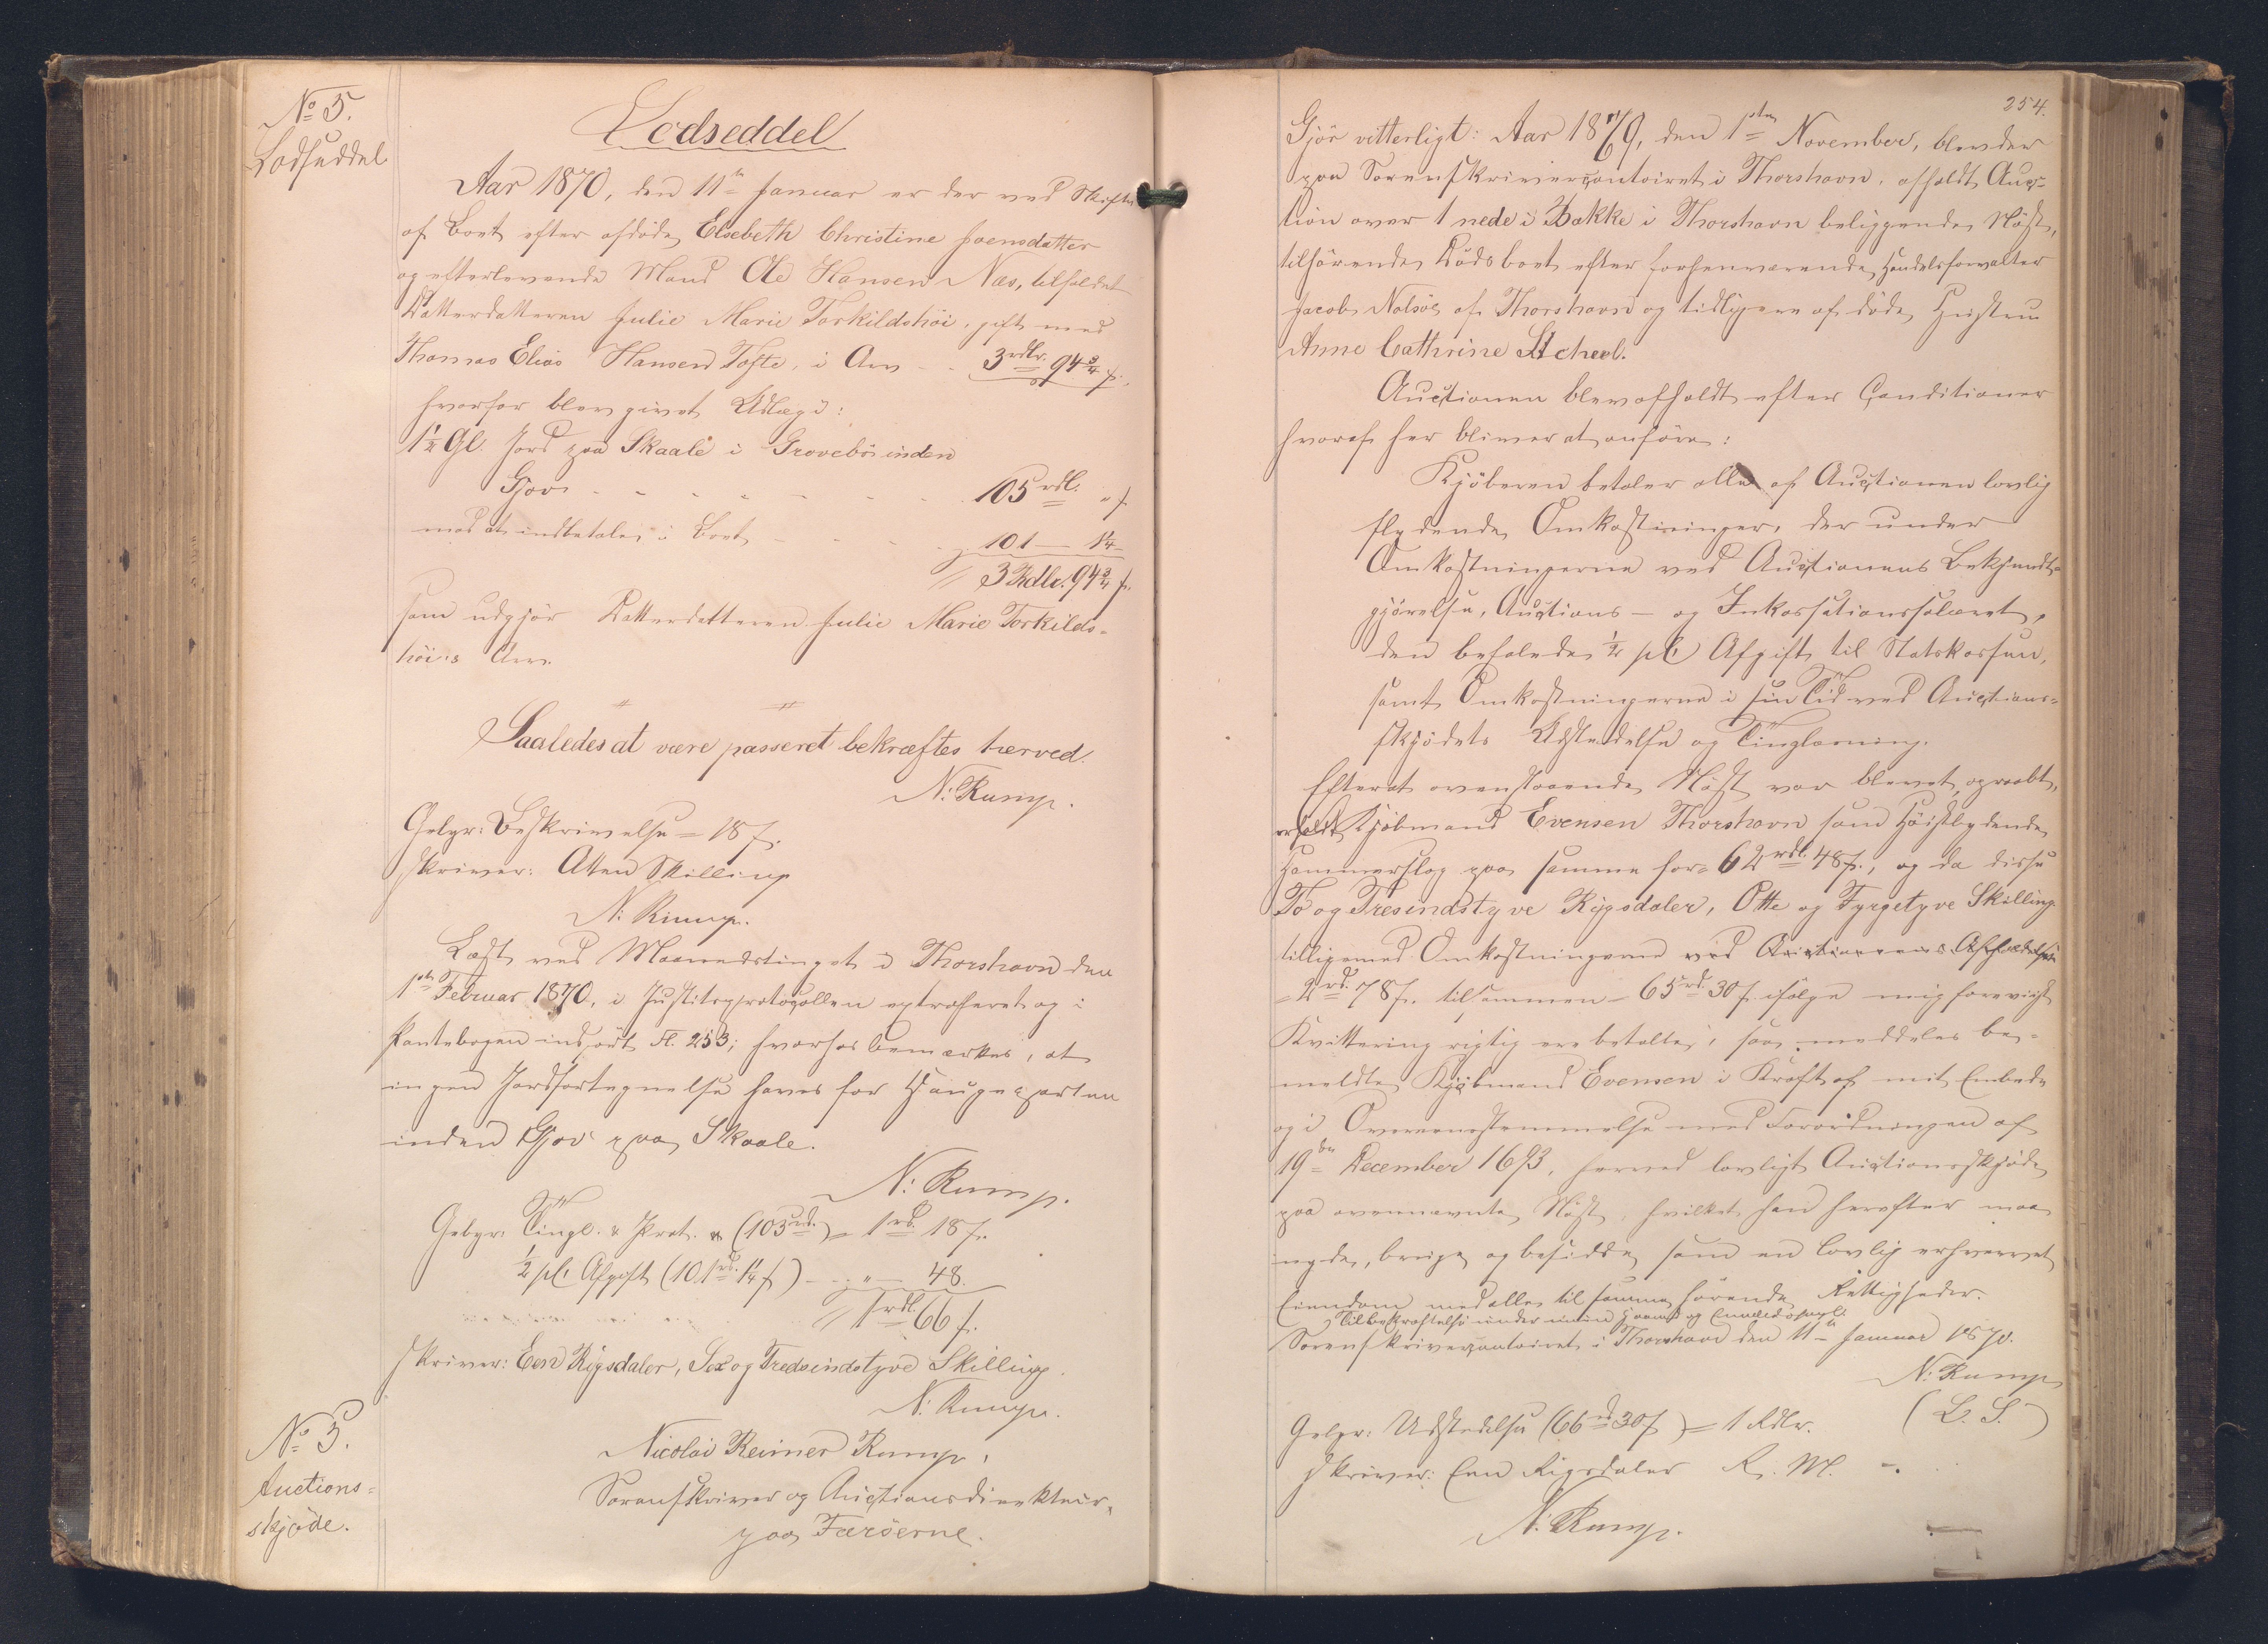 No 5.
Lodseddel
Lodseddel
Aar 1870, den 11te Januar er der ved Skifte
af Boet efter afdøde Elsebeth Christine Joensdatter
og efterlevende Mand Ole Hansen Næs, tilfaldet
Datterdatteren Julie Marie Torkildshöi, gift med
Thomas Elias Hansen Tofte, i Arv - - 3 rdlr. 94 3/4 s.
hvorfor blev givet Udlæg i:
1 1/2 Gl. Jord paa Skaale i Grovebö inden
Gjov - - - - - - - - 105 rdl. " s.
mod at indbetale i Boet - - - - 101 — 1 1/4 -
3 Rdlr. 94 3/4 s.
som udgjør Datterdatteren Julie Marie Torkilds-
höi's Arv.
Saaledes at være passeret bekræftes herved.
N: Rump.
Gebyr: Beskrivelse = 18 s.
skriver: Atten Skilling
N: Rump.
Læst ved Maanedstinget i Thorshavn den
1ste Februar 1870, i Justitsprotocollen extraheret og i
Pantebogen indført Fl. 253; hvorhos bemærkes, at
ingen Jordfortegnelse haves for Haugeparten
inden Gjov paa Skaale.
N: Rump.
Gebyr: Tingl. & Prot. (105 rd.) = 1 rd. 18 s.
1/2 pCt. Afgift (101 rd. 1 1/4 s) - " - 48.
1 rdl. 66 s.
skriver: Een Rigsdaler, Sex og Tredsindstyve Skilling.
N: Rump.
No 3.
Auctions-
skjøde.
Nicolai Reimer Rump,
Sorenskriver og Auctionsdirekteur
paa Færöerne.
254.
Gjör vitterligt: Aar 1869, den 1ste November, blev der
paa Sorenskrivercontoiret i Thorshavn, afholdt Auc-
tion over 1 nede i Bakke i Thorshavn beliggende Nöst,
tilhörende Dödsboet efter forhenværende Handelsforvalter
Jacob Nolsöe af Thorshavn og tidligere afdöde Hustru
Anne Cathrine Scheel.
Auctionen blev afholdt efter Conditioner
hvoraf her bliver at anføre:
Kjöberen betaler alle af Auctionen lovlig
flydende Omkostninger, der under
Omkostningerne ved Auctionens Bekjendt-
gjörelse, Auctions- og Inkassationssalairet,
den befalede 1/2 pCt Afgift til Statskassen,
samt Omkostningerne i sin Tid ved Auctions-
skjödets Udstedelse og Tinglæsning.
Efterat ovenstaaende Nöst var blevet opraabt,
erholdt Kjöbmand Evensen Thorshavn som Höistbydende
Hammerslag paa samme for 62 rdl. 48 s., og da disse
To og Tresindstyve Rigsdaler, Otte og Fyrgetyve Skilling
tilligemed Omkostningerne ved Auctionens Afholdelse
= 2 rd. 78 s. tilsammen = 65 rd. 30 s. ifølge mig foreviist
Kvittering rigtig ere betalte, saa meddeles be-
meldte Kjöbmand Evensen i Kraft af mit Embede
og i Overeensstemmelse med Forordningen af
19de December 1693, herved lovligt Auctionsskjöde
paa ovennævnte Nöst, hvilket han herefter maa
nyde, bruge og besidde som en lovlig erhvervet
Eiendom med alle til samme hörende Rettigheder.
Til Bekræftelse under min Haand og Embedssegl.
Sorenskrivercontoiret i Thorshavn den 11te Januar 1870.
N: Rump
(L. S.)
Gebyr: Udstedelse (66 rd 30 s) = 1 Rdlr.
skriver: Een Rigsdaler R. M.
N. Rump.